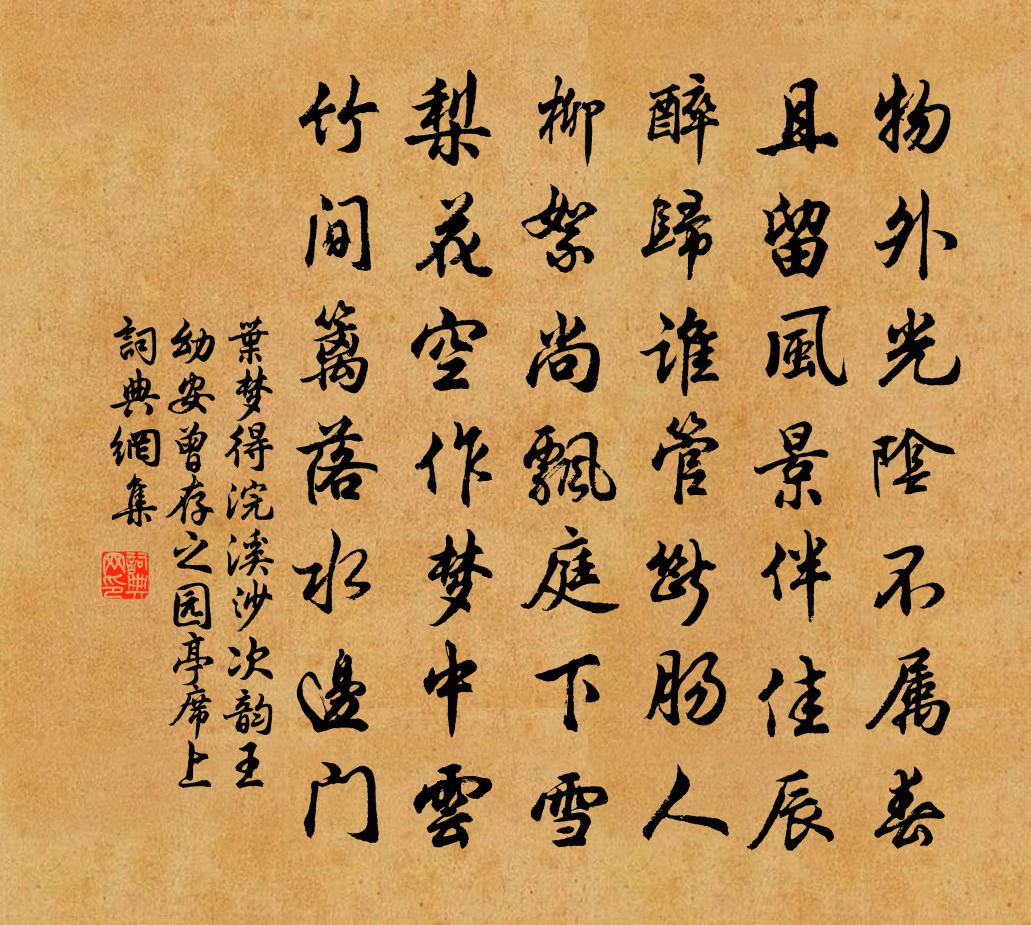 物外光陰不属春
且留風景伴佳辰
醉歸誰管斷肠人
柳絮尚飄庭下雪
梨花空作梦中雲
竹间篱落水邊门
葉梦得浣溪沙次韵王
幼安曾存之园亭席上
詞典網集
詞典网印